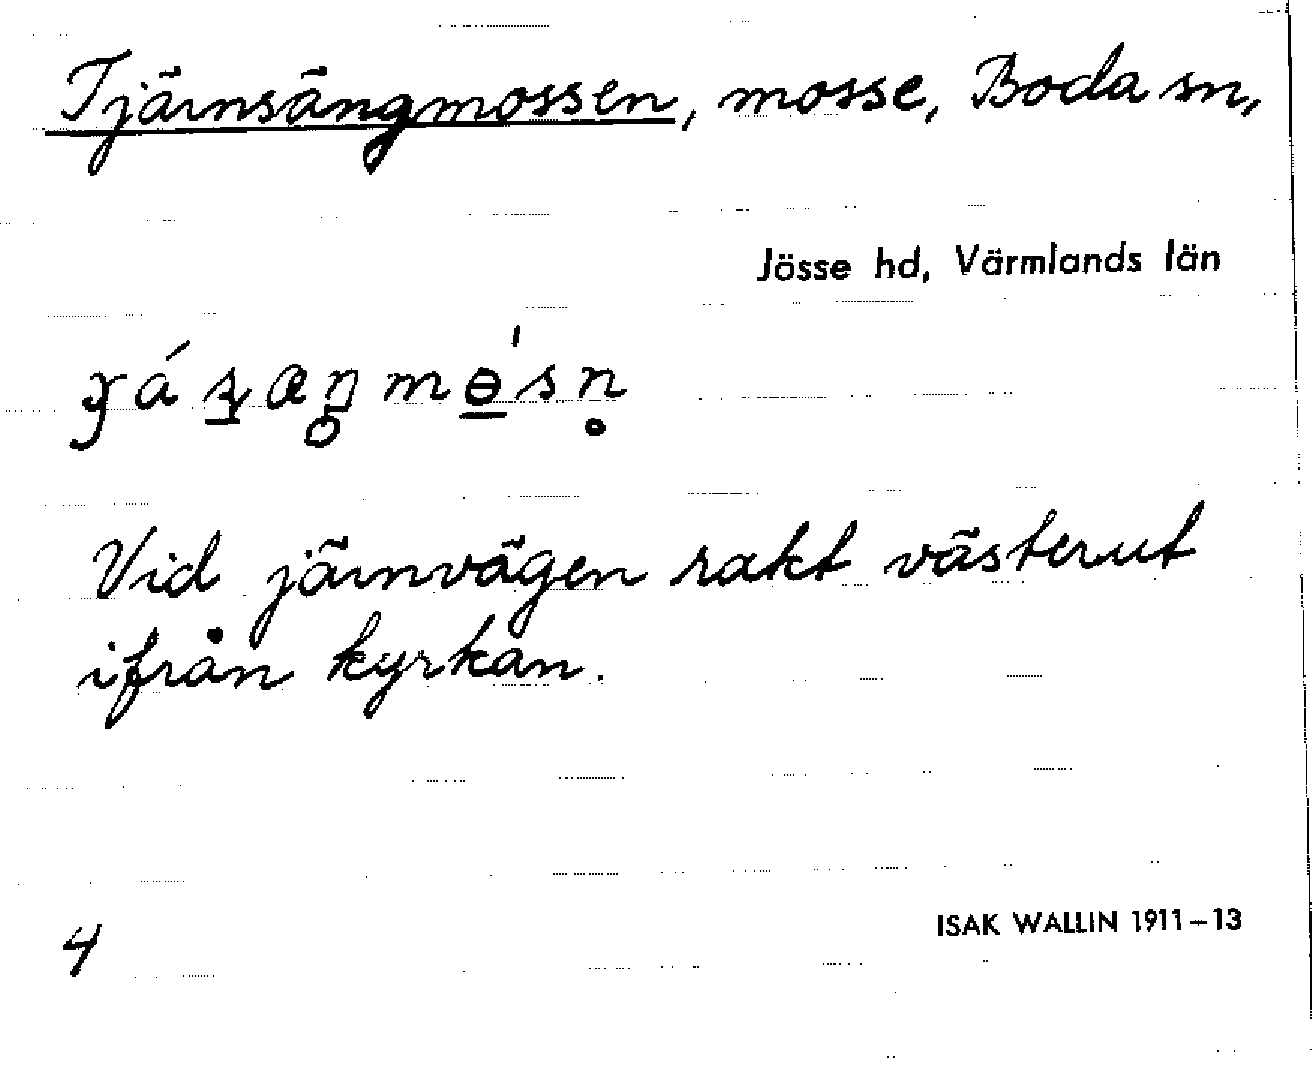 Tjärnsängmossen, mosse, Boda sn,
Jösse hd, Värmlands län
Vid järnvägen rakt västerut
ifrån kyrkan.
4
ISAK WALLIN 1911–13